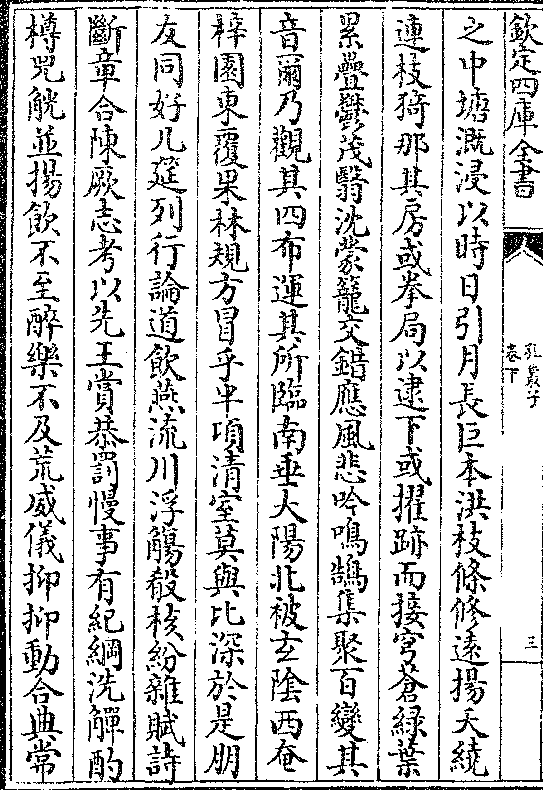 欽定四庫全書
孔叢子
卷下
三
之中塘溉浸以時日引月長巨本洪枝條修遠揚夭繞
連枝猗那其房或拳局以逮下或擢跡而接穹蒼綠葉
累疊鬱茂翳沈蒙籠交錯應風悲吟鳴鵠集聚百變其
音爾乃觀其四布運其所臨南垂大陽北被玄陰西奄
梓園東覆果林規方冒乎半項清室莫與比深於是朋
友同好几筵列行論道飲燕流川浮觴殽核紛雜賦詩
斷章合陳厥志考以先王賞恭罰慢事有紀綱洗觶酌
樽兕觥並揚飲不至醉樂不及荒威儀抑抑動合典常